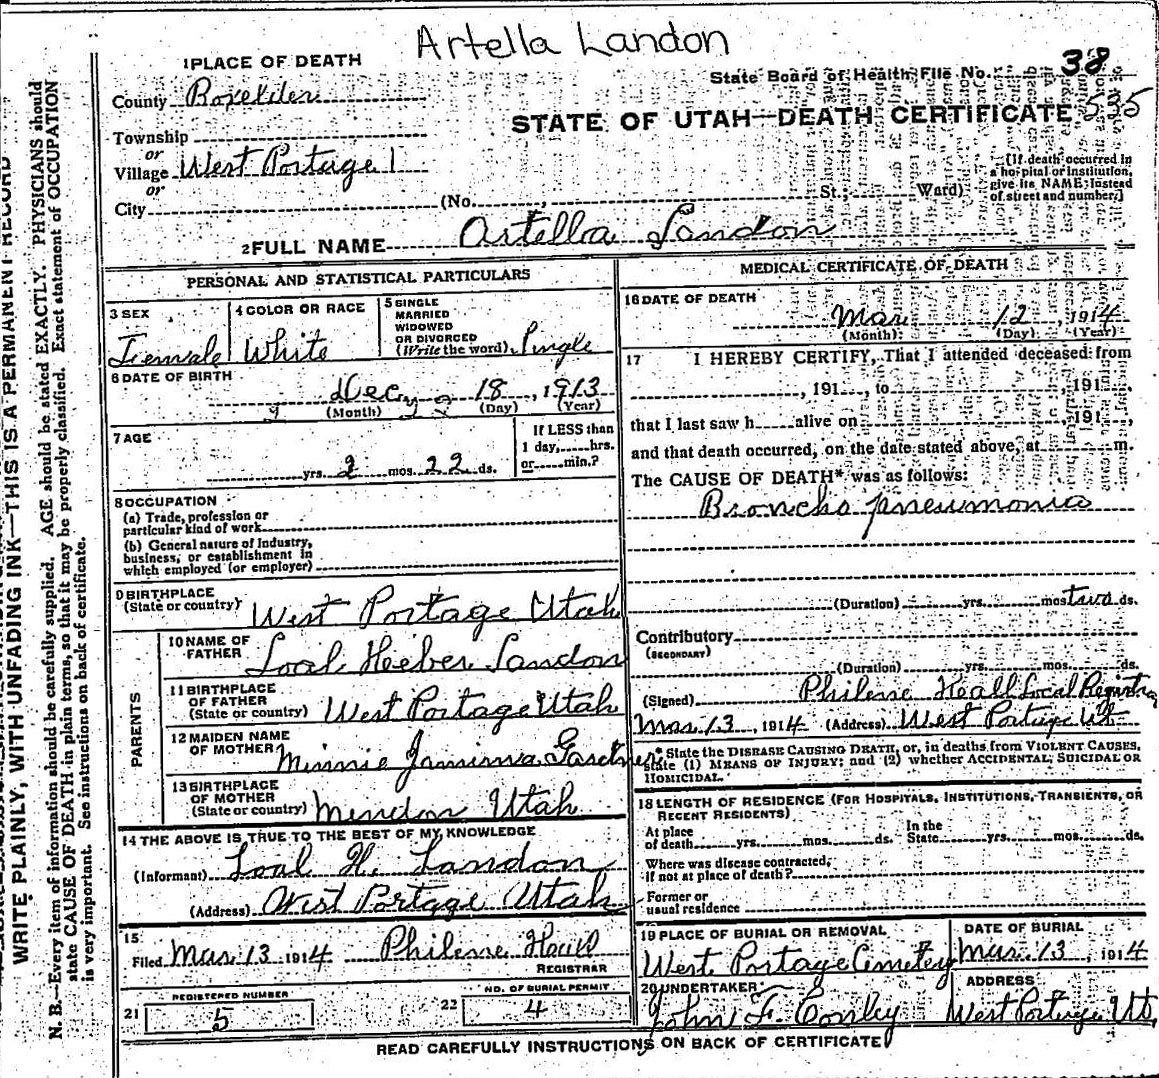 Artella Landon
1 PLACE OF DEATH
State Board of Health File No. 38
County Boxelder
STATE OF UTAH—DEATH CERTIFICATE
Township
or
Village West Portage
or
City (No. , St.; Ward)
(If death occurred in a hospital or institution, give its NAME instead of street and number.)
2 FULL NAME Artella Landon
PERSONAL AND STATISTICAL PARTICULARS
3 SEX
Female
4 COLOR OR RACE
White
5 SINGLE MARRIED WIDOWED OR DIVORCED (Write the word) Single
6 DATE OF BIRTH
Dec 18, 1913
(Month) (Day) (Year)
7 AGE
yrs. 2 mos. 22 ds.
If LESS than 1 day, hrs. or min.?
8 OCCUPATION
(a) Trade, profession or particular kind of work
(b) General nature of Industry, business, or establishment in which employed (or employer)
9 BIRTHPLACE (State or country) West Portage Utah
PARENTS
10 NAME OF FATHER Loal Heeber Landon
11 BIRTHPLACE OF FATHER (State or country) West Portage Utah
12 MAIDEN NAME OF MOTHER Minnie Jamima Gardner
13 BIRTHPLACE OF MOTHER (State or country) Mendon Utah
14 THE ABOVE IS TRUE TO THE BEST OF MY KNOWLEDGE
(Informant) Loal H. Landon
(Address) West Portage Utah
15 Filed Mar. 13 1914 Philene
REGISTRAR
21 REGISTERED NUMBER 5
22 NO. OF BURIAL PERMIT 4
MEDICAL CERTIFICATE OF DEATH
16 DATE OF DEATH
Mar 12, 1914
(Month) (Day) (Year)
17 I HEREBY CERTIFY, That I attended deceased from
, 191 , to , 191 ,
that I last saw h alive on , 191 ,
and that death occurred, on the date stated above, at m.
The CAUSE OF DEATH* was as follows:
Broncho pneumonia
(Duration) yrs. mos. two ds.
Contributory
(SECONDARY)
(Duration) yrs. mos. ds.
(Signed) Philene Local Registrar
Mar. 13, 1914 (Address) West Portage Ut
* State the DISEASE CAUSING DEATH, or, in deaths from VIOLENT CAUSES, state (1) MEANS OF INJURY; and (2) whether ACCIDENTAL, SUICIDAL OR HOMICIDAL.
18 LENGTH OF RESIDENCE (FOR HOSPITALS, INSTITUTIONS, TRANSIENTS, OR RECENT RESIDENTS)
At place of death yrs. mos. ds. In the State yrs. mos. ds.
Where was disease contracted, if not at place of death?
Former or usual residence
19 PLACE OF BURIAL OR REMOVAL
West Portage Cemetery
DATE OF BURIAL
Mar. 13, 1914
20 UNDERTAKER
John F. Conley
ADDRESS
West Portage, Ut.
READ CAREFULLY INSTRUCTIONS ON BACK OF CERTIFICATE
WRITE PLAINLY, WITH UNFADING INK—THIS IS A PERMANENT RECORD
N. B.—Every item of information should be carefully supplied. AGE should be stated EXACTLY. PHYSICIANS should
state CAUSE OF DEATH in plain terms, so that it may be properly classified. Exact statement of OCCUPATION
is very important. See instructions on back of certificate.